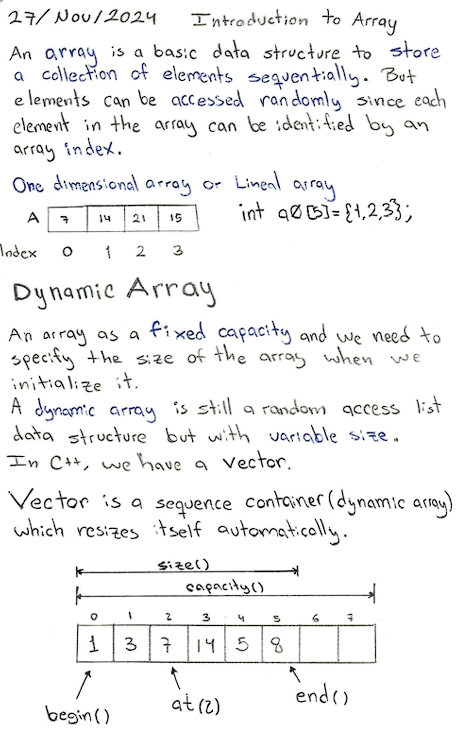 27/Nov/2024 Introduction to Array
An array is a basic data structure to store
a collection of elements sequentially. But
elements can be accessed randomly since each
element in the array can be identified by an
array index.
One dimensional array or Lineal array
A 7 14 21 15 int a0[5]={1,2,3};
Index 0 1 2 3
Dynamic Array
An array as a fixed capacity and we need to
specify the size of the array when we
initialize it.
A dynamic array is still a random access list
data structure but with variable size.
In C++, we have a vector.
Vector is a sequence container (dynamic array)
which resizes itself automatically.
size()
capacity()
0 1 2 3 4 5 6 7
1 3 7 14 5 8
begin() at(2) end()